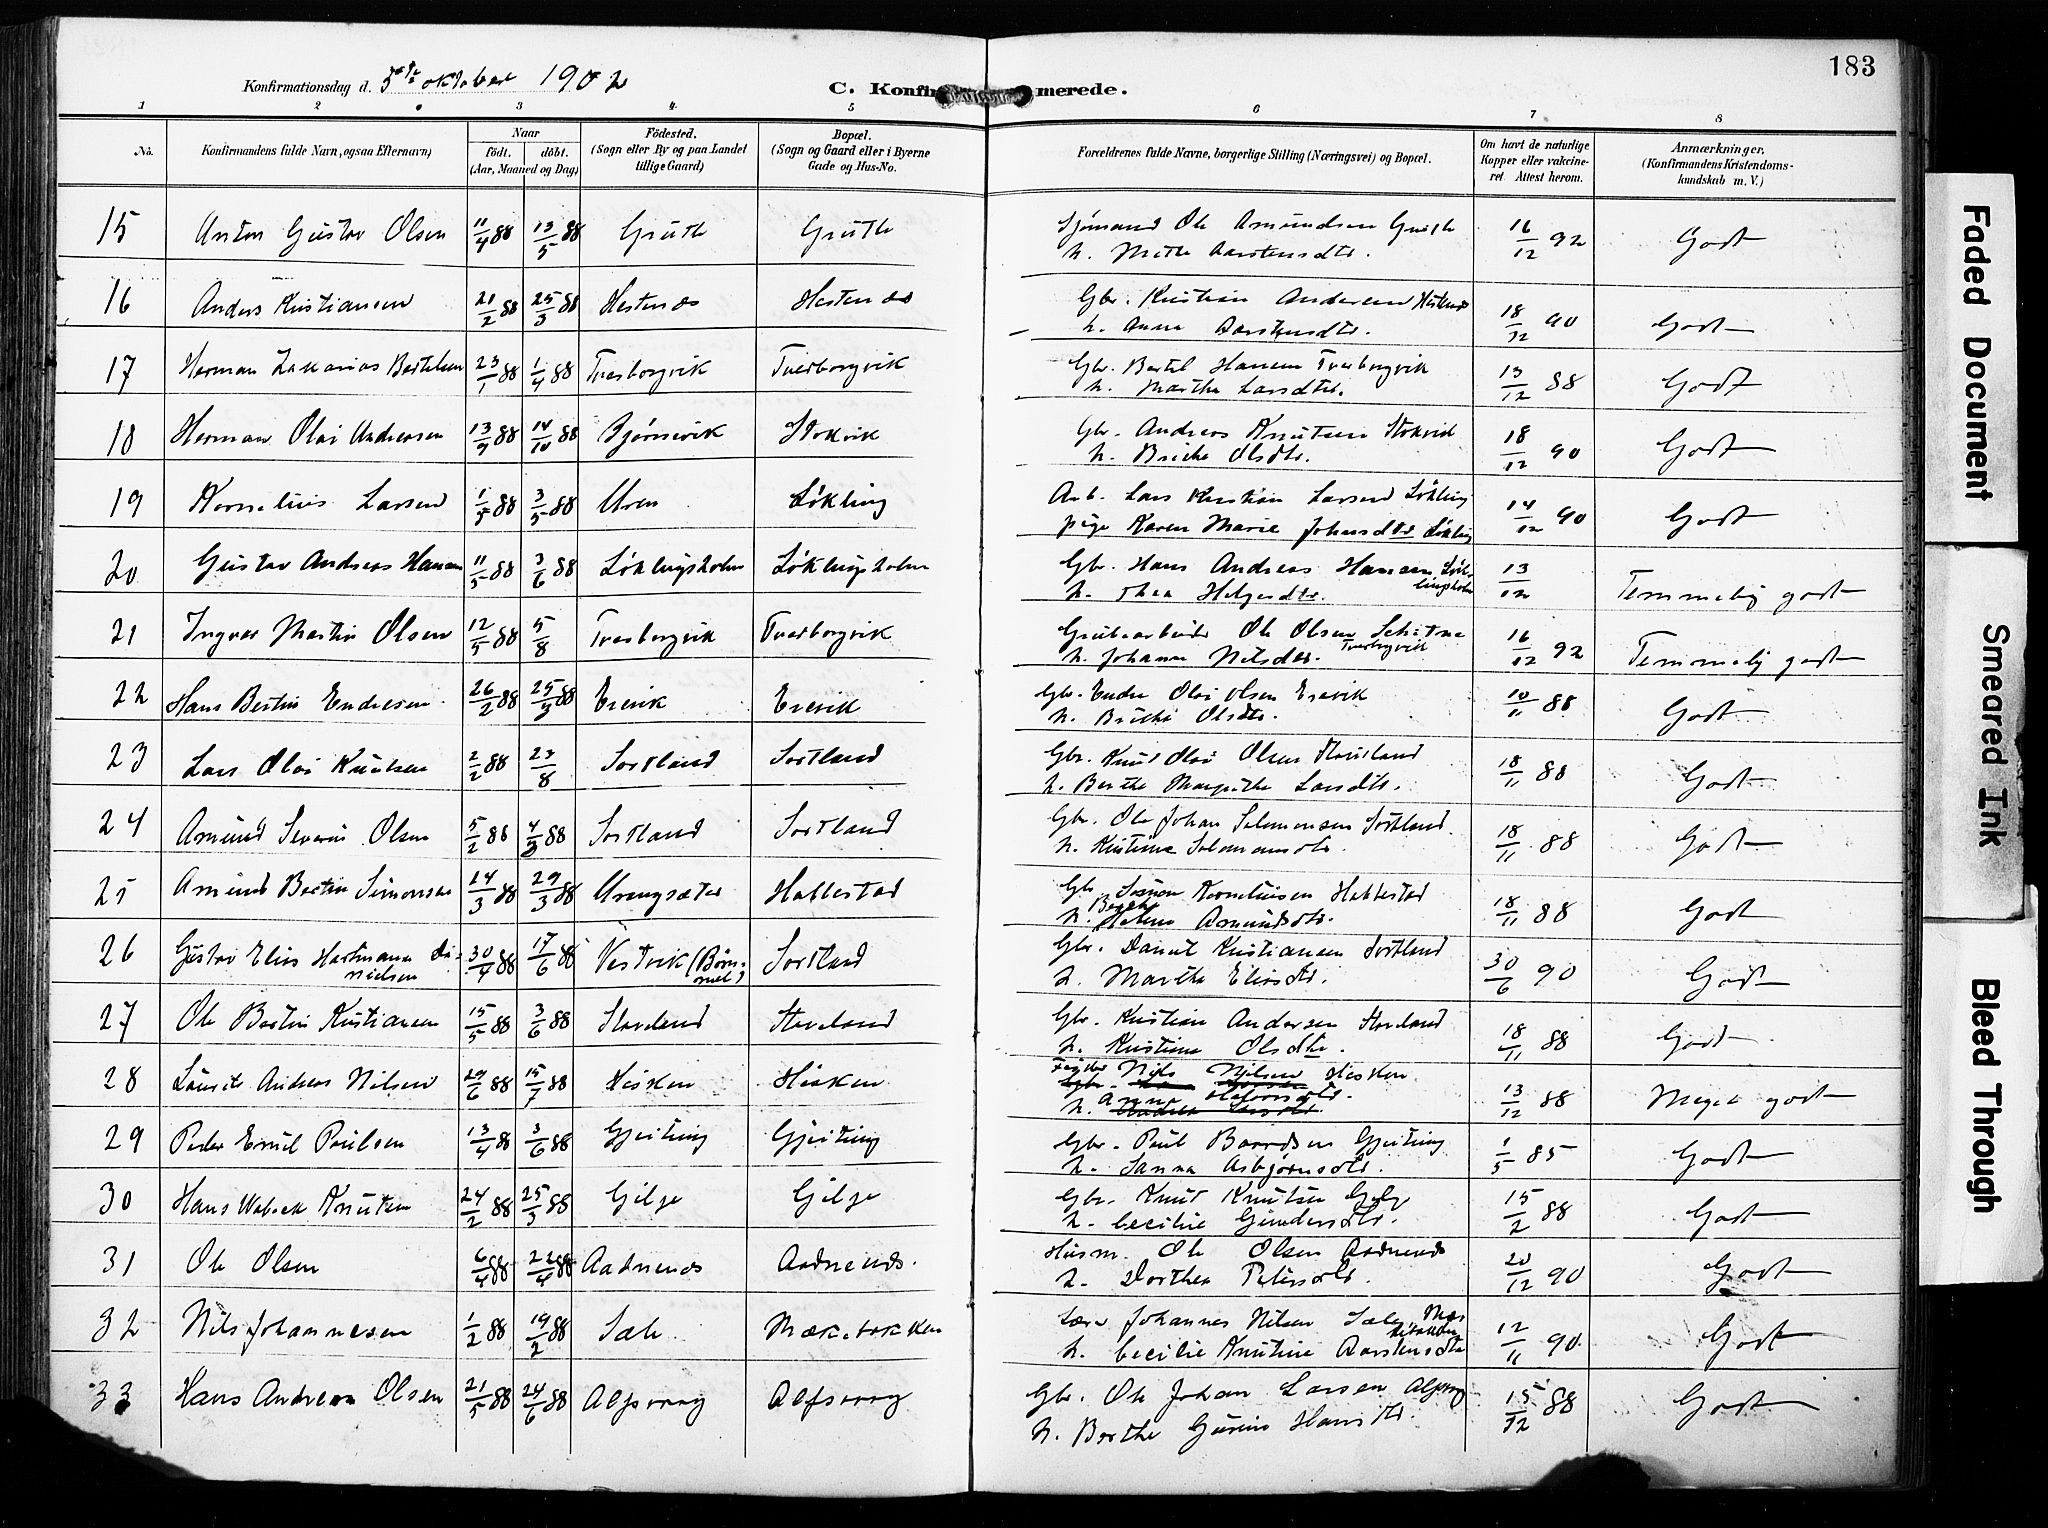 183
Konfirmationsdag d. 5te oktober 1902
C. Konfir merede.
1 2 3 4 5 6 7 8
No.
Konfirmandens fulde Navn, ogsaa Efternavn)
Naar
födt. döbt.
(Aar, Maaned og Dag)
Födested.
(Sogn eller By og paa Landet
tillige Gaard)
Bopæl.
(Sogn og Gaard eller i Byerne
Gade og Hus-No.
Forældrenes fulde Navne, borgerlige Stilling (Næringsvei) og Bopæl.
Om havt de naturlige
Kopper eller vakcine-
ret. Attest herom.
Anmærkninger.
(Konfirmandens Kristendoms-
kundskab m. V.)
15 Anton Gustav Olsen 11/4 88 13/5 88 Grutle Grutle Sjømand Ole Amundsen Grutle 16/12 92 Godt
h. Mette Aarstensdtr.
16 Anders Kristiansen 21/2 88 25/3 88 Hestenes Hestenes Gbr. Kristian Andersen Hestenes 18/12 90 Godt
h. Anna Aarstensdtr.
17 Herman Zakarias Bertelsen 23/1 88 1/4 88 Tverborgvik Tverborgvik Gbr. Bertel Hansen Tverborgvik 13/12 88 Godt
h. Marthe Larsdtr.
18 Herman Olai Andreasen 13/9 88 14/10 88 Bjørnevik Stokvik Gbr. Andreas Knutsen Stokvik 18/12 90 Godt
h. Brithe Olsdtr.
19 Kornelius Larsen 1/5 88 3/5 88 Uren Løkling Arb. Lars Kristian Larsen Løkling 14/12 90 Godt
pige Karen Marie Johansdtr Løkling
20 Gustav Andreas Hansen 11/5 88 3/6 88 Løklingsholm Løklingsholm Gbr. Hans Andreas Hansen Løk- 13/12 Temmelig godt
h. Thea Helgesdtr. lingsholm
21 Ingvar Martin Olsen 12/5 88 5/8 Tverborgvik Tverborgvik Grubearbeider Ole Olsen 16/12 92 Temmelig godt
h. Johanna Nilsdtr. Tverborgvik
22 Hans Bertin Endresen 26/2 88 25/3 88 Erevik Erevik Gbr. Endre Olai Olsen Erevik 10/11 88 Godt
h. Brithe Olsdtr.
23 Lars Olai Knutsen 2/2 88 23/8 Sortland Sortland Gbr. Knut Olai Olsen 18/11 88 Godt
h. Berthe Margrethe Larsdtr.
24 Amund Severin Olsen 5/2 88 4/3 88 Sortland Sortland Gbr. Ole Johan Salomonsen Sortland 18/11 88 Godt
h. Kristine Salomonsdtr.
25 Amund Bertin Simonsen 14/3 88 29/3 88 Urangsæter Hallestad Gbr. Simon Korneliusen Hallestad 18/11 88 Godt
h. Berthe Helene Amundsdtr.
26 Gustav Elias Hartmann Da- 30/4 88 17/6 88 Vestvik (Børn- Sortland Gbr. Daniel Kristiansen Sortland 30/6 90 Godt
nielsen h. Marthe Eliasdtr.
27 Ole Bertin Kristiansen 15/5 88 3/6 88 Staveland Staveland Gbr. Kristian Andersen Staveland 18/11 88 Godt
h. Kristine Olsdtr.
28 Laurits Andreas Nilsen 29/6 88 15/7 88 Hisken Hisken Nils Nilsen Hisken 13/12 88 Meget godt
h. Anna
29 Peder Emil Paulsen 13/4 88 3/6 88 Gjeitung Gjeitung Gbr. Paul Baardsen Gjeitung 1/5 85 Godt
h. Sanna Asbjørnsdtr.
30 Hans Wabeck Knutsen 24/2 88 25/3 88 Gilje Gilje Gbr. Knut Knutsen Gilje 15/2 88 Godt
h. Cecilie Gundersdtr.
31 Ole Olsen 6/4 88 22/4 88 Aadnenes Aadnenes. Husm. Ole Olsen Aadnenes 20/12 90 Godt
h. Dorthea Petersdtr.
32 Nils Johannesen 1/2 88 19/2 88 Sæle Mækebakken Johannes Nilsen Sæle Mæke- 12/11 90 Godt
bakken h. Cecilie Knutine Aarstensdtr
33 Hans Andreas Olsen 21/5 88 24/6 88 Alfsvaag Alfsvaag Gbr. Ole Johan Larsen Alfsvaag 15/12 88 Godt
h. Berthe Gurine Hansdtr.
Faded Document
Smeared Ink
Bleed Through